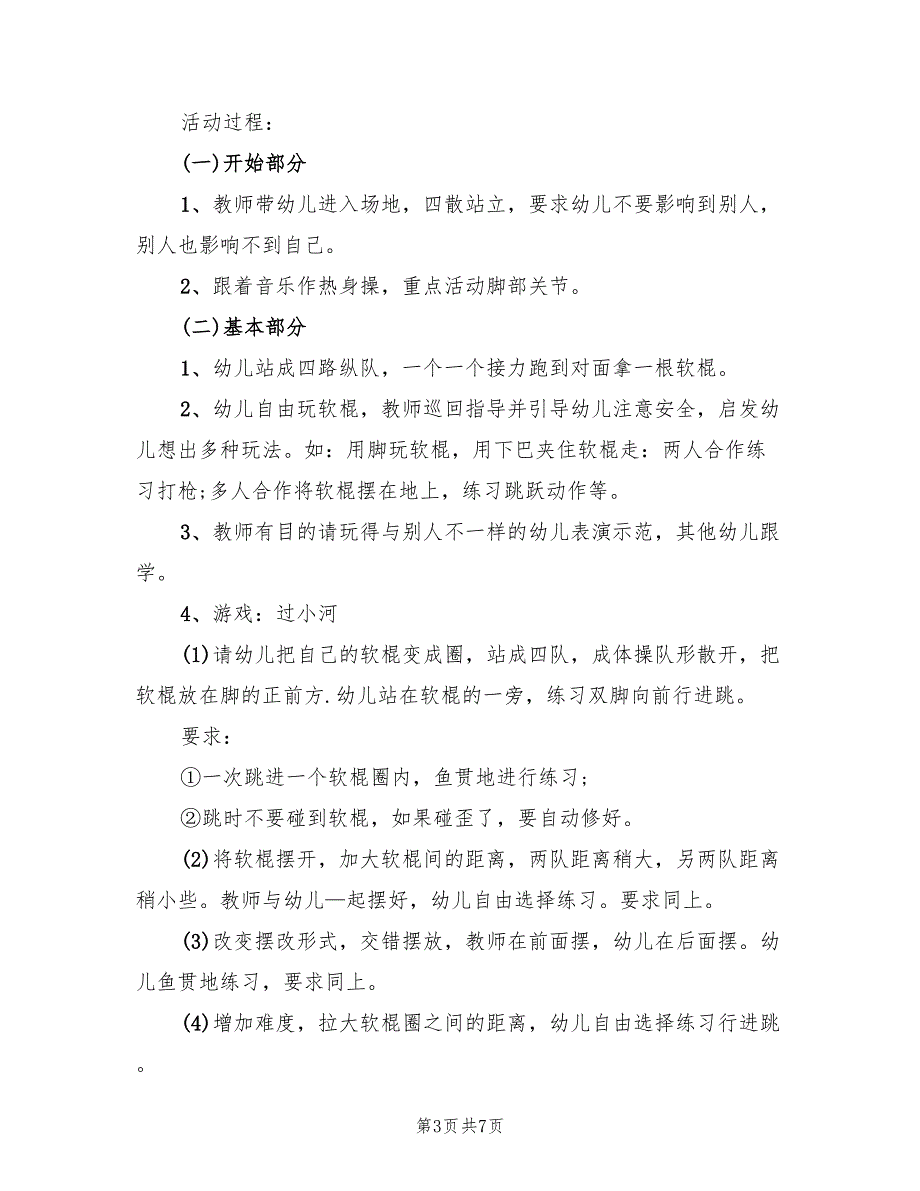 活动过程：
(一)开始部分
1、教师带幼儿进入场地，四散站立，要求幼儿不要影响到别人，
别人也影响不到自己。
2、跟着音乐作热身操，重点活动脚部关节。
(二)基本部分
1、幼儿站成四路纵队，一个一个接力跑到对面拿一根软棍。
2、幼儿自由玩软棍，教师巡回指导并引导幼儿注意安全，启发幼
儿想出多种玩法。如：用脚玩软棍，用下巴夹住软棍走：两人合作练
习打枪;多人合作将软棍摆在地上，练习跳跃动作等。
3、教师有目的请玩得与别人不一样的幼儿表演示范，其他幼儿跟
学。
4、游戏：过小河
(1)请幼儿把自己的软棍变成圈，站成四队，成体操队形散开，把
软棍放在脚的正前方.幼儿站在软棍的一旁，练习双脚向前行进跳。
要求：
①一次跳进一个软棍圈内，鱼贯地进行练习;
②跳时不要碰到软棍，如果碰歪了，要自动修好。
(2)将软棍摆开，加大软棍间的距离，两队距离稍大，另两队距离
稍小些。教师与幼儿—起摆好，幼儿自由选择练习。要求同上。
(3)改变摆改形式，交错摆放，教师在前面摆，幼儿在后面摆。幼
儿鱼贯地练习，要求同上。
(4)增加难度，拉大软棍圈之间的距离，幼儿自由选择练习行进跳
。
第3页 共7页